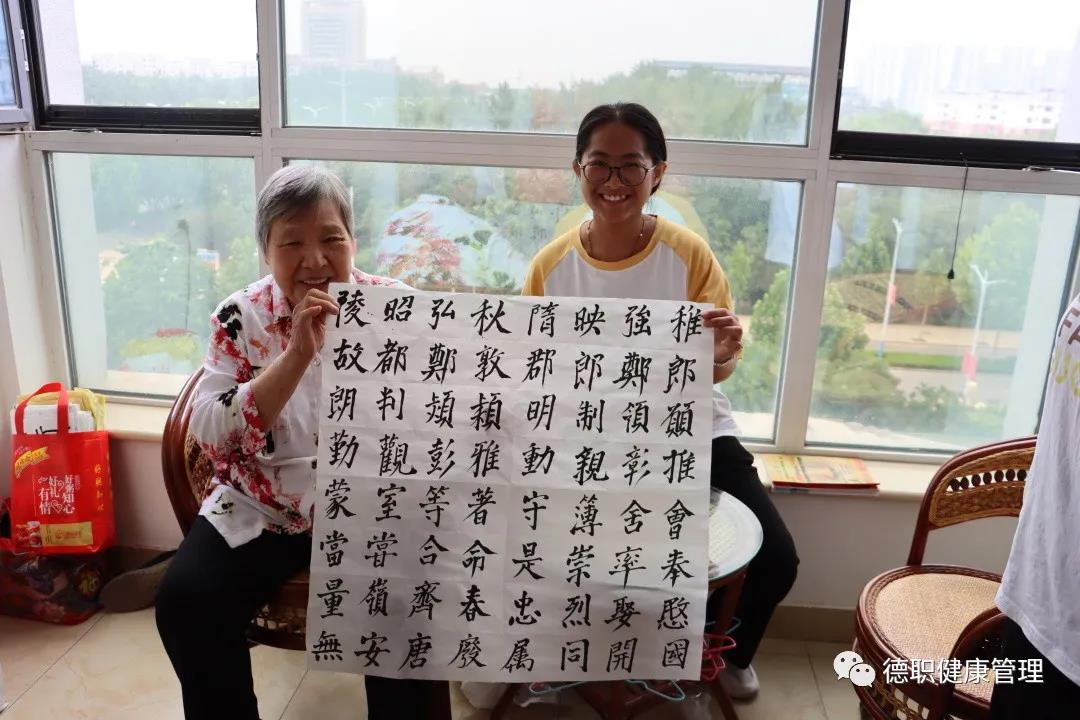 陵昭弘秋隋映強稚
故都鄭敦郡郎鄭郎
朗判頍穎明制領顧
勤觀彭雅動親彰推
蒙室等著守薄舍會
當嘗合命是崇率奉
量嶺齊春忠烈娶愍
無安唐廢属同開國
好粥知心
好礼有情
德职健康管理